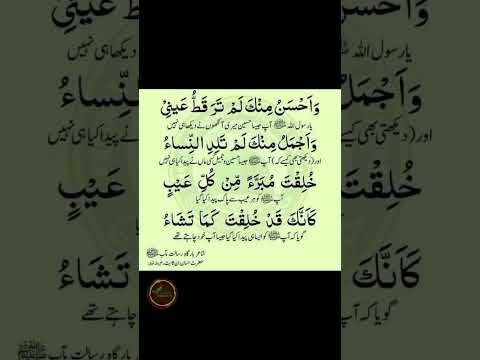 وَاَحْسَنُ مِنْكَ لَمْ تَرَ قَطُّ عَيْنِيْ
یارسول اللہ ﷺ آپ جیسا حسین میری آنکھوں نے دیکھا ہی نہیں
وَاَجْمَلُ مِنْكَ لَمْ تَلِدِ النِّسَاءُ
اور (دیکھتی بھی کیسے کہ) آپ ﷺ جیسا حسین و جمیل کسی ماں نے پیدا کیا ہی نہیں
خُلِقْتَ مُبَرَّءً مِّنْ كُلِّ عَيْبٍ
آپ ﷺ کو ہر عیب سے پاک پیدا کیا گیا
كَاَنَّكَ قَدْ خُلِقْتَ كَمَا تَشَاءُ
گویا کہ آپ ﷺ کو ایسا ہی پیدا کیا گیا جیسا آپ خود چاہتے تھے
شاعر بارگاہ رسالت مآب ﷺ
حضرت حسان بن ثابت